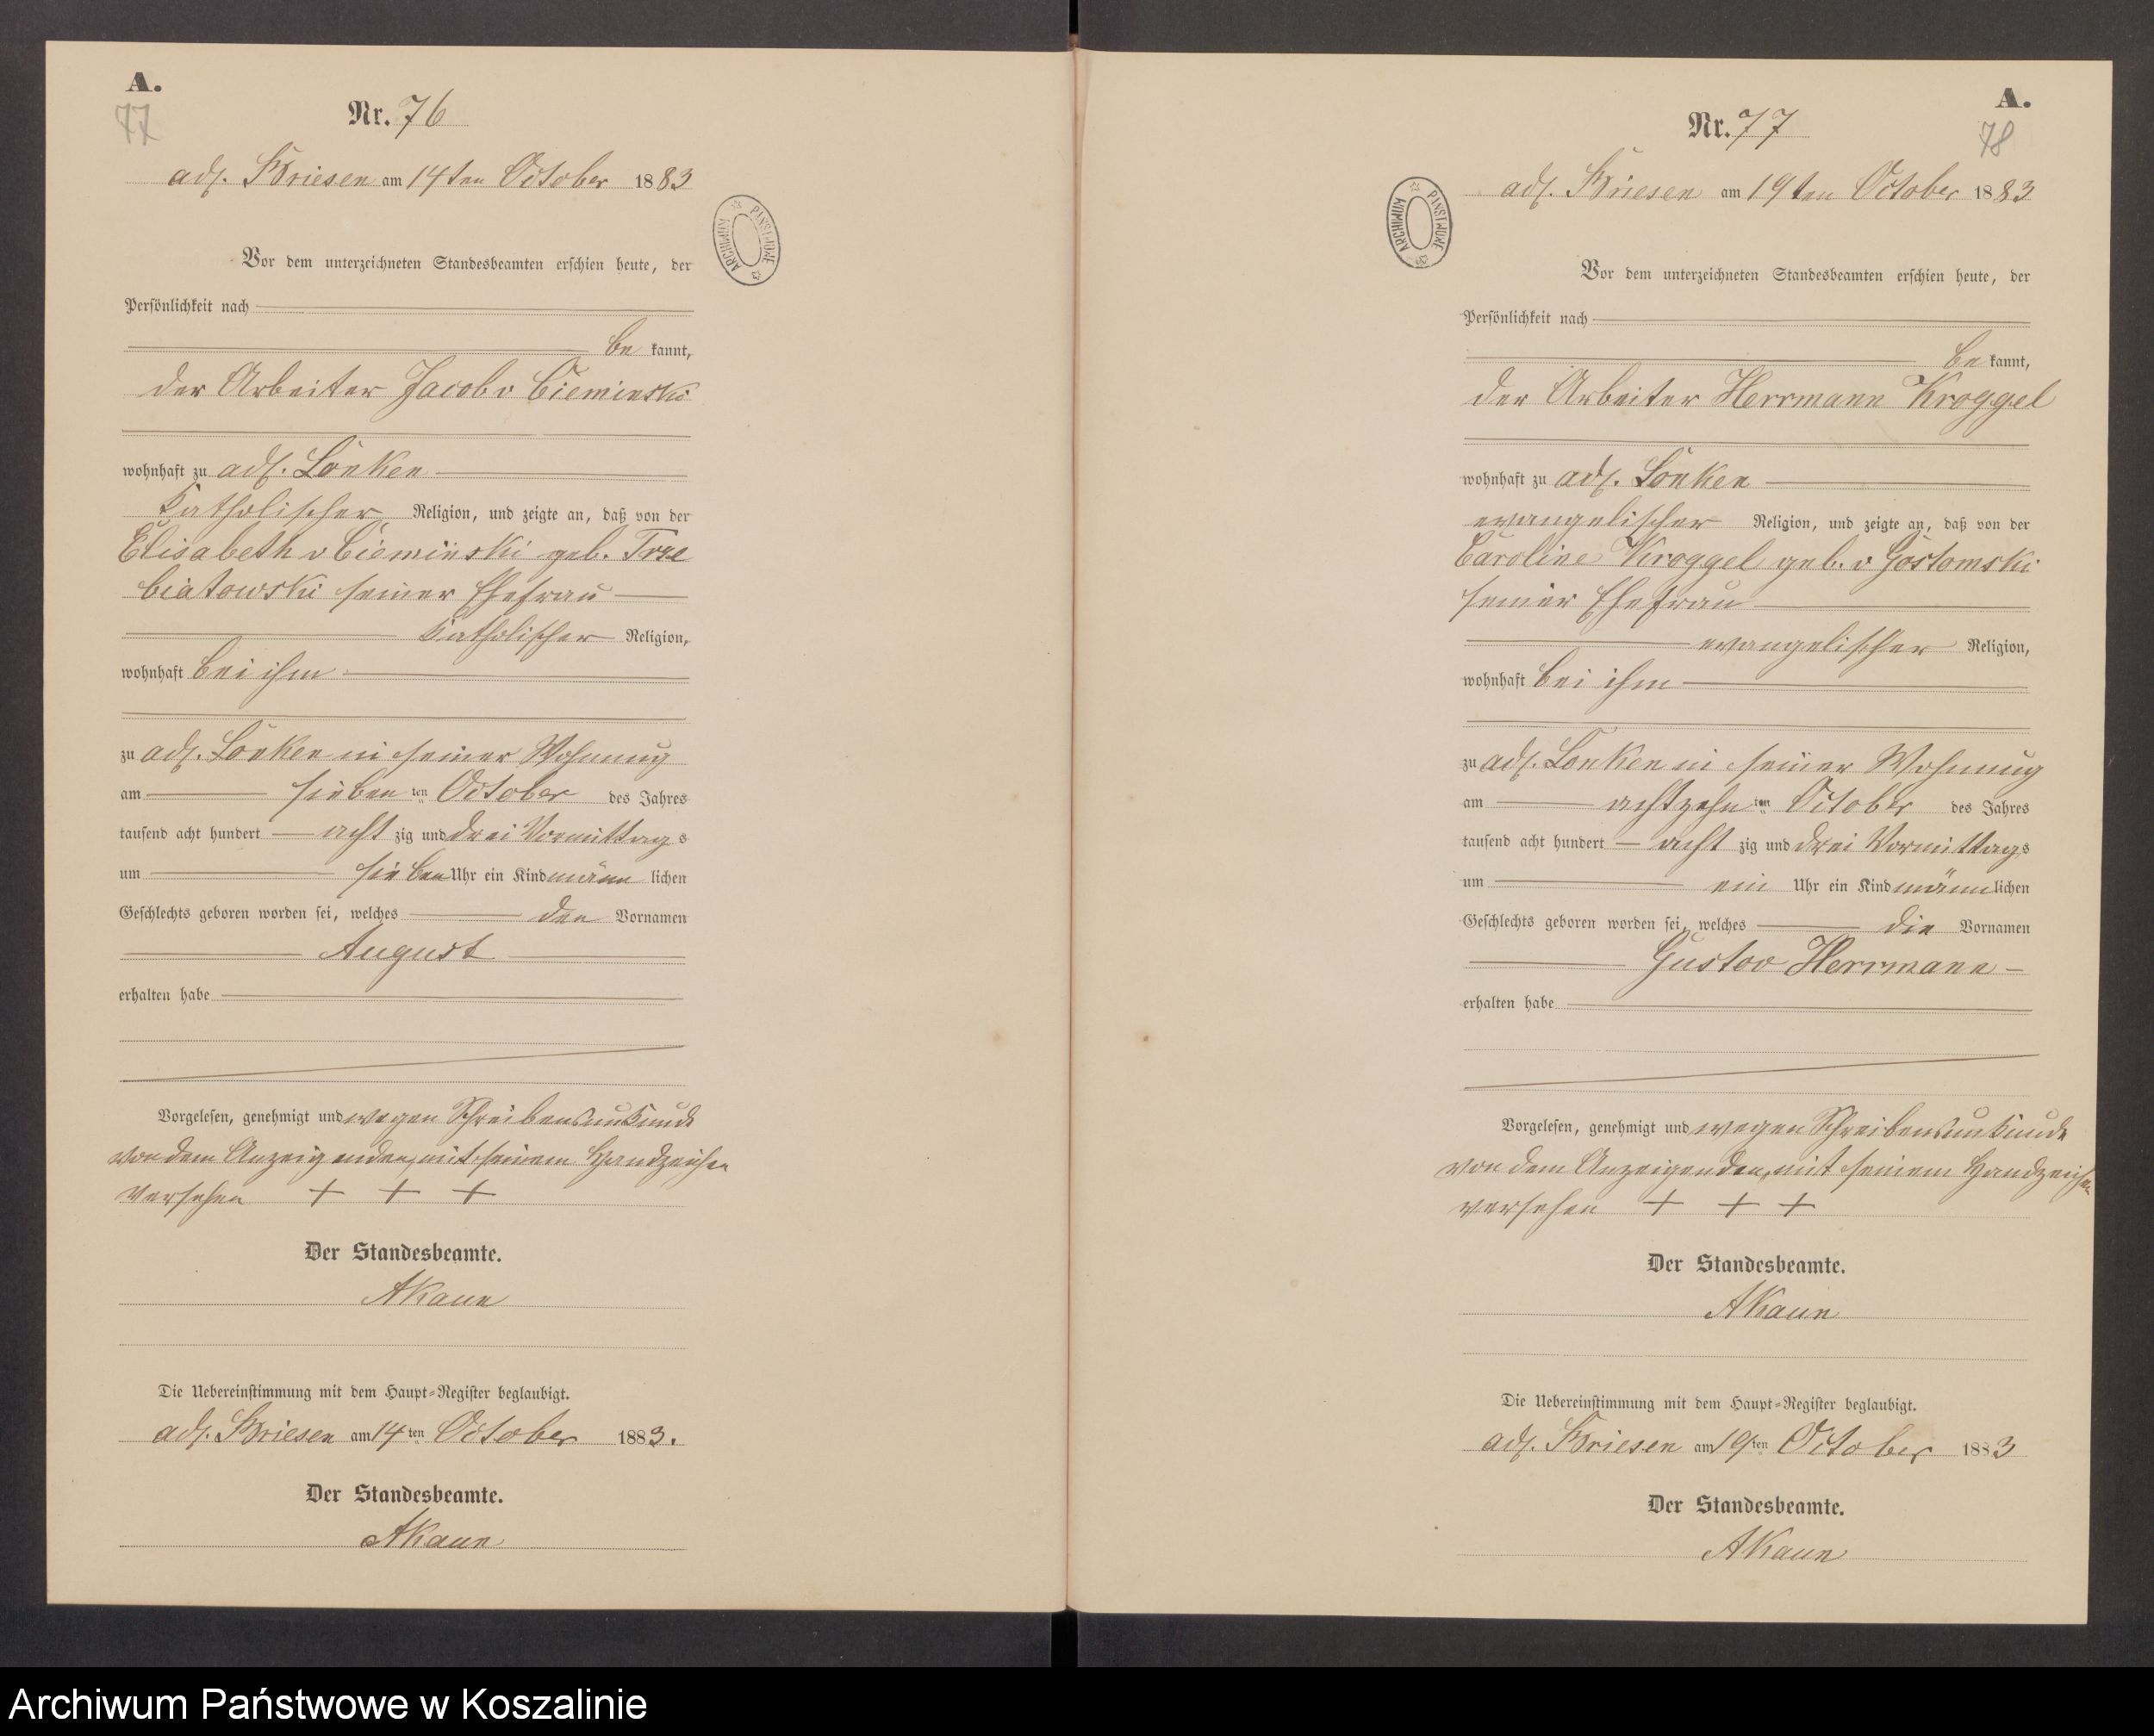 A.
77
Nr. 76
adl. Briesen am 14ten October 1883
ARCHIWUM PAŃSTWOWE
Vor dem unterzeichneten Standesbeamten erschien heute, der
Persönlichkeit nach
be kannt,
der Arbeiter Jacob v Cieminski
wohnhaft zu adl. Lonken
katholischer Religion, und zeigte an, daß von der
Elisabeth v Cieminski geb. Trze
biatowski seiner Ehefrau
katholischer Religion,
wohnhaft bei ihm
zu adl. Lonken in seiner Wohnung
am sieben ten October des Jahres
tausend acht hundert acht zig und drei Vormittags
um sieben Uhr ein Kind männ lichen
Geschlechts geboren worden sei, welches den Vornamen
August
erhalten habe
Vorgelesen, genehmigt und wegen Schreibensunkunde
von dem Anzeigenden mit seinem Handzeichen
versehen + + +
Der Standesbeamte.
AKaun
Die Uebereinstimmung mit dem Haupt-Register beglaubigt.
adl. Briesen am 14ten October 1883.
Der Standesbeamte.
AKaun
A.
78
Nr. 77
adl. Briesen am 19ten October 1883
ARCHIWUM PAŃSTWOWE
Vor dem unterzeichneten Standesbeamten erschien heute, der
Persönlichkeit nach
be kannt,
der Arbeiter Herrmann Kroggel
wohnhaft zu adl. Lonken
evangelischer Religion, und zeigte an, daß von der
Caroline Kroggel geb. v Gostomski
seiner Ehefrau
evangelischer Religion,
wohnhaft bei ihm
zu adl. Lonken in seiner Wohnung
am achtzehn ten October des Jahres
tausend acht hundert acht zig und drei Vormittags
um ein Uhr ein Kind männlichen
Geschlechts geboren worden sei, welches die Vornamen
Gustav Herrmann
erhalten habe
Vorgelesen, genehmigt und wegen Schreibensunkunde
von dem Anzeigenden mit seinem Handzeichen
versehen + + +
Der Standesbeamte.
AKaun
Die Uebereinstimmung mit dem Haupt-Register beglaubigt.
adl. Briesen am 19ten October 1883
Der Standesbeamte.
AKaun
Archiwum Państwowe w Koszalinie